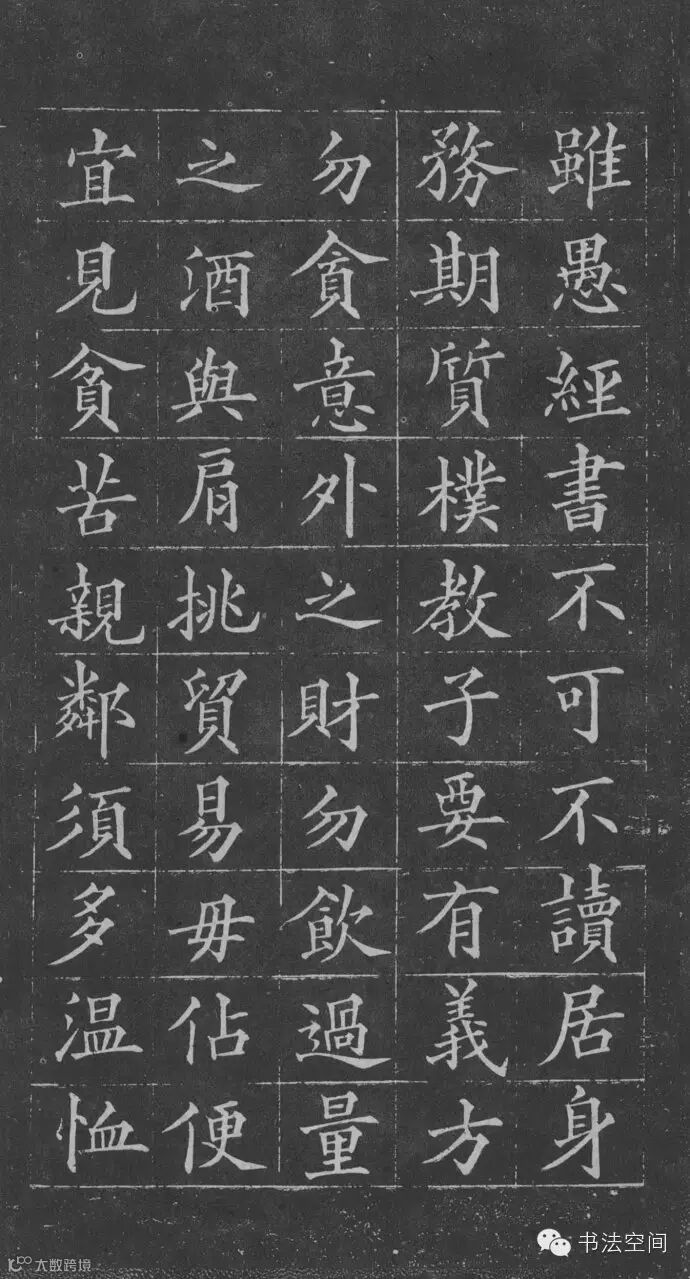 雖愚經書不可不讀居身
務期質樸教子要有義方
勿貪意外之財勿飲過量
之酒與肩挑貿易毋佔便
宜見貧苦親鄰須多温恤
书法空间
大数跨境